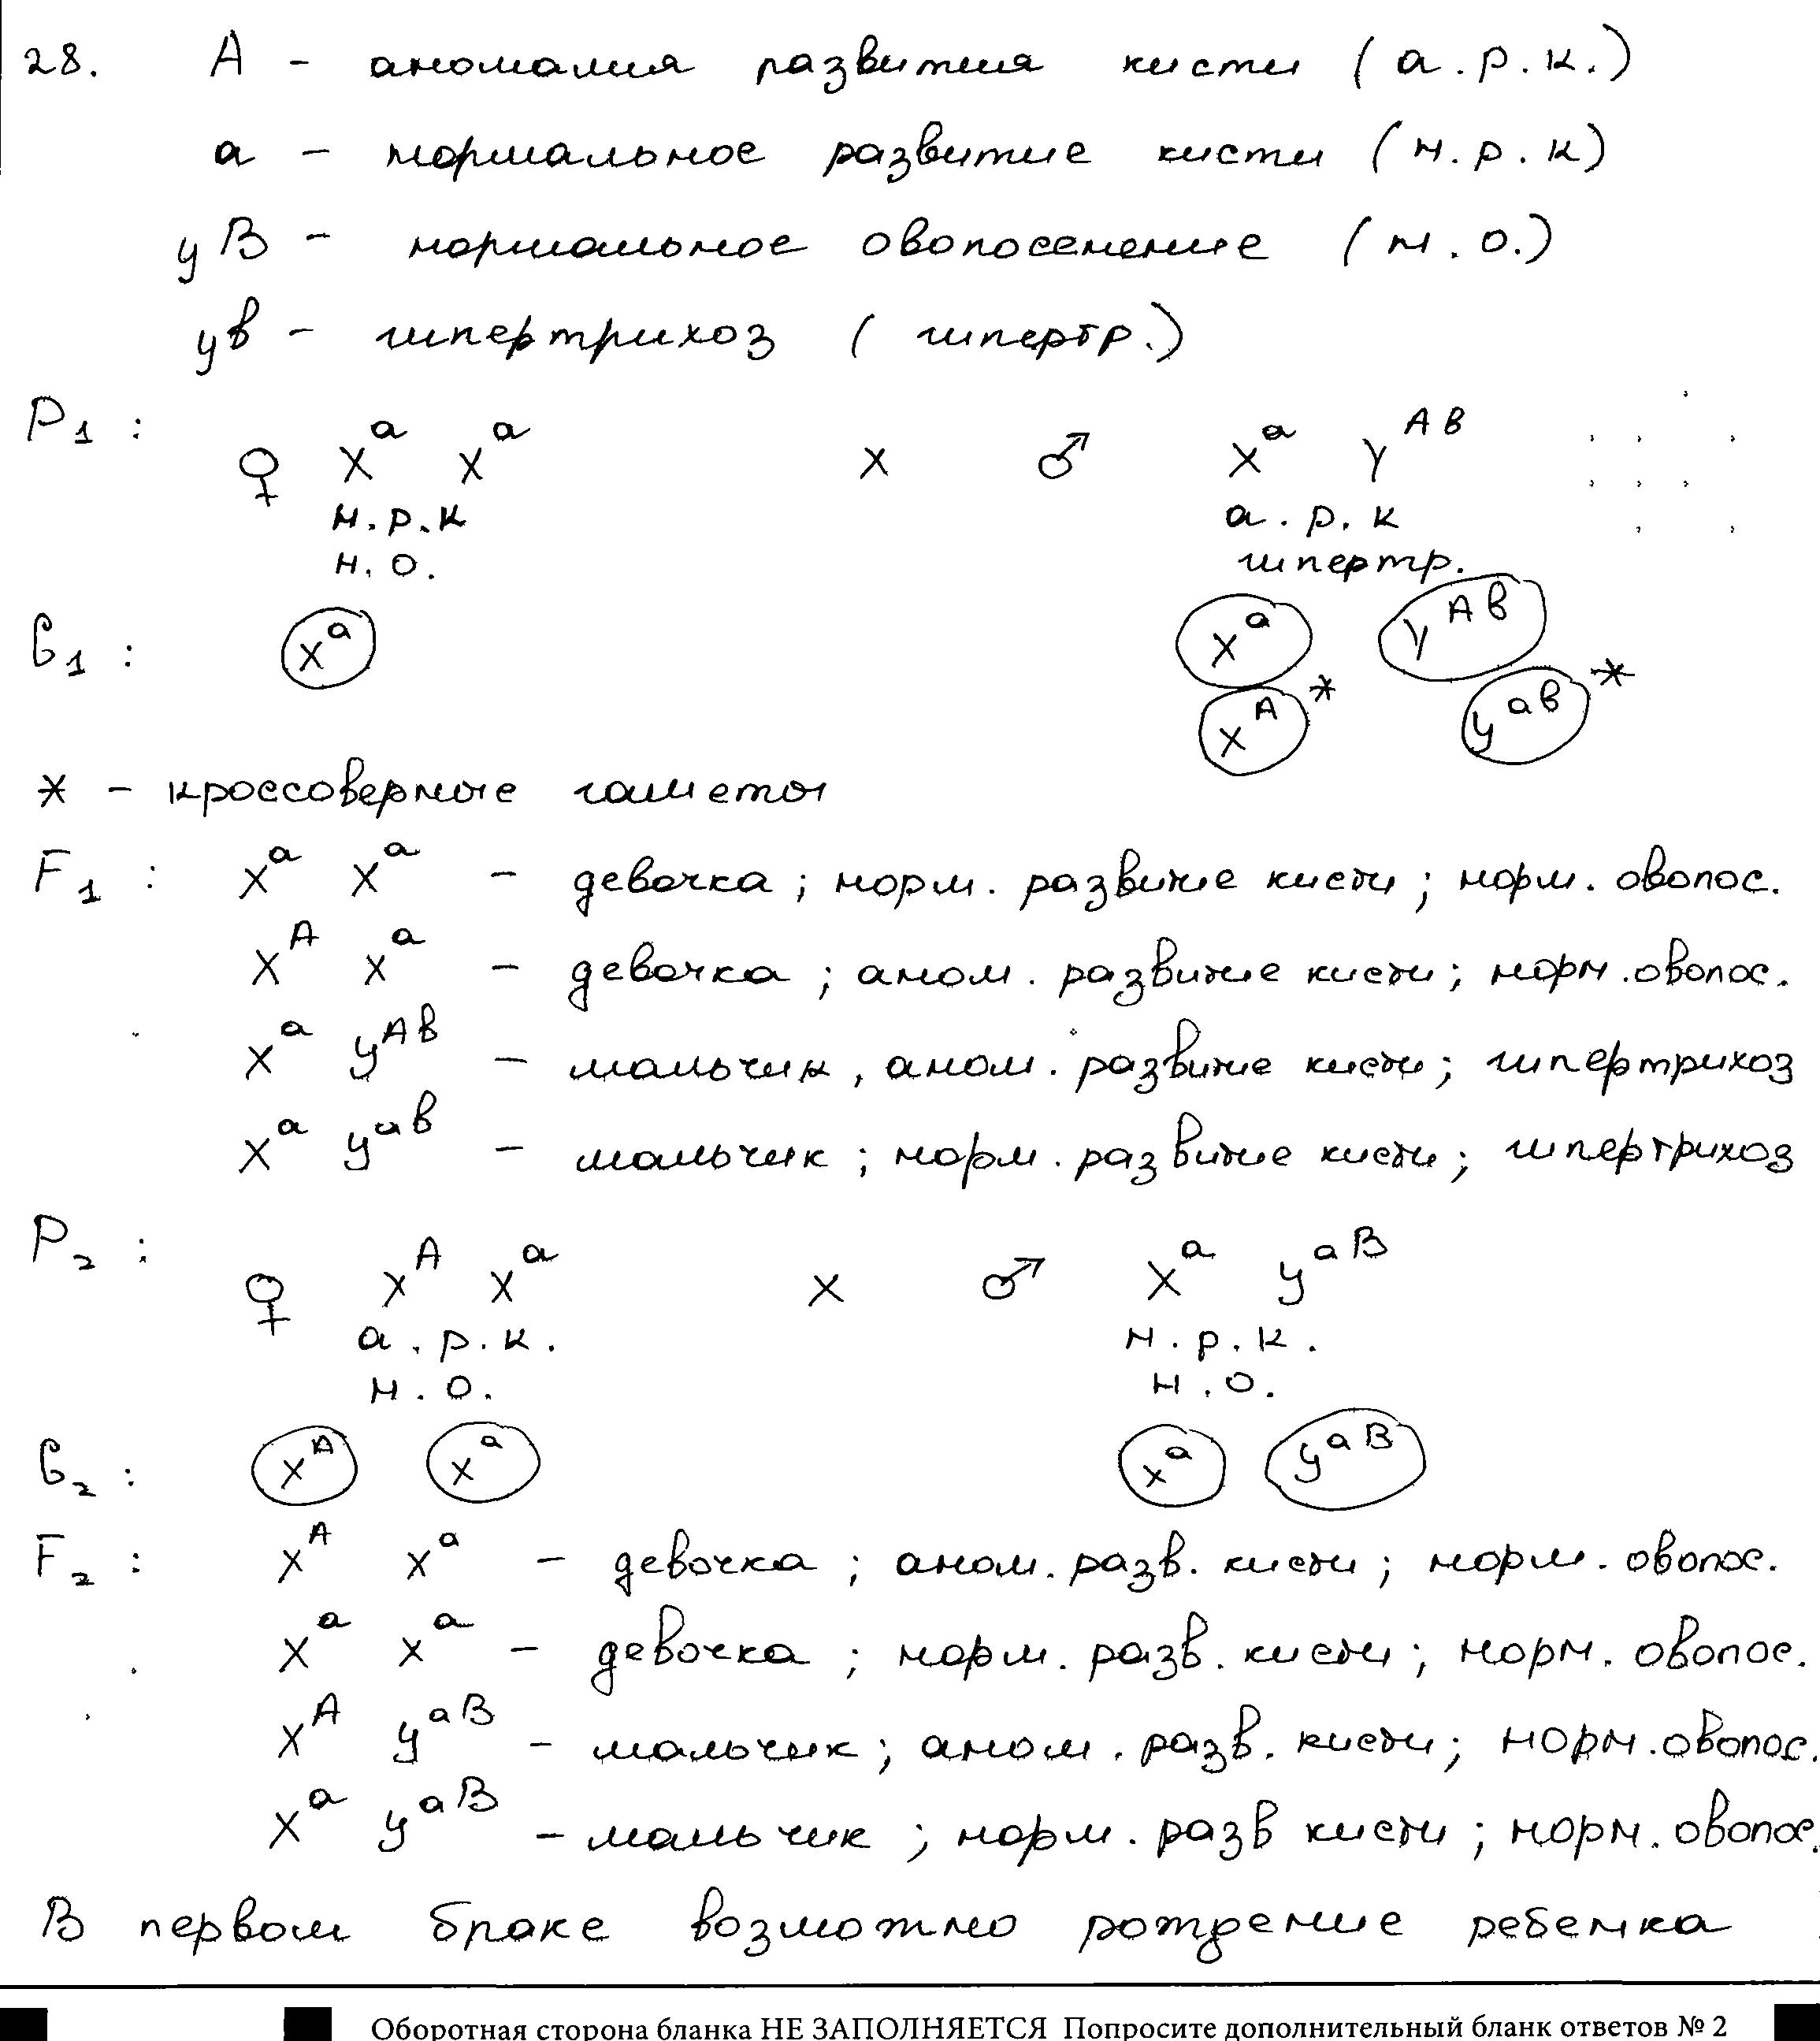 28. А - аномалия развития кисти (а.р.к.)
а - нормальное развитие кисти (н.р.к)
yB - нормальное оволосенение (н.о.)
yв - гипертрихоз (гипертр.)
P₁ : ♀ Xᵃ Xᵃ x ♂ Xᵃ Yᴬᵇ
н.р.к а.р.к
н.о. гипертр.
G₁ : Xᵃ Xᵃ Yᴬᵇ
Xᴬ* yᵃᵇ*
* - кроссоверные гаметы
F₁ : Xᵃ Xᵃ - девочка; норм. развитие кисти; норм. оволос.
Xᴬ Xᵃ - девочка; аном. развитие кисти; норм. оволос.
Xᵃ yᴬᵇ - мальчик, аном. развитие кисти; гипертрихоз
Xᵃ yᵃᵇ - мальчик; норм. развитие кисти; гипертрихоз
P₂ : ♀ Xᴬ Xᵃ x ♂ Xᵃ yᵃᴮ
а.р.к. н.р.к.
н.о. н.о.
G₂ : Xᴬ Xᵃ Xᵃ yᵃᴮ
F₂ : Xᴬ Xᵃ - девочка; аном. разв. кисти; норм. оволос.
Xᵃ Xᵃ - девочка; норм. разв. кисти; норм. оволос.
Xᴬ yᵃᴮ - мальчик; аном. разв. кисти; норм. оволос.
Xᵃ yᵃᴮ - мальчик; норм. разв кисти; норм. оволос.
В первом браке возможно рождение ребенка
Оборотная сторона бланка НЕ ЗАПОЛНЯЕТСЯ Попросите дополнительный бланк ответов № 2